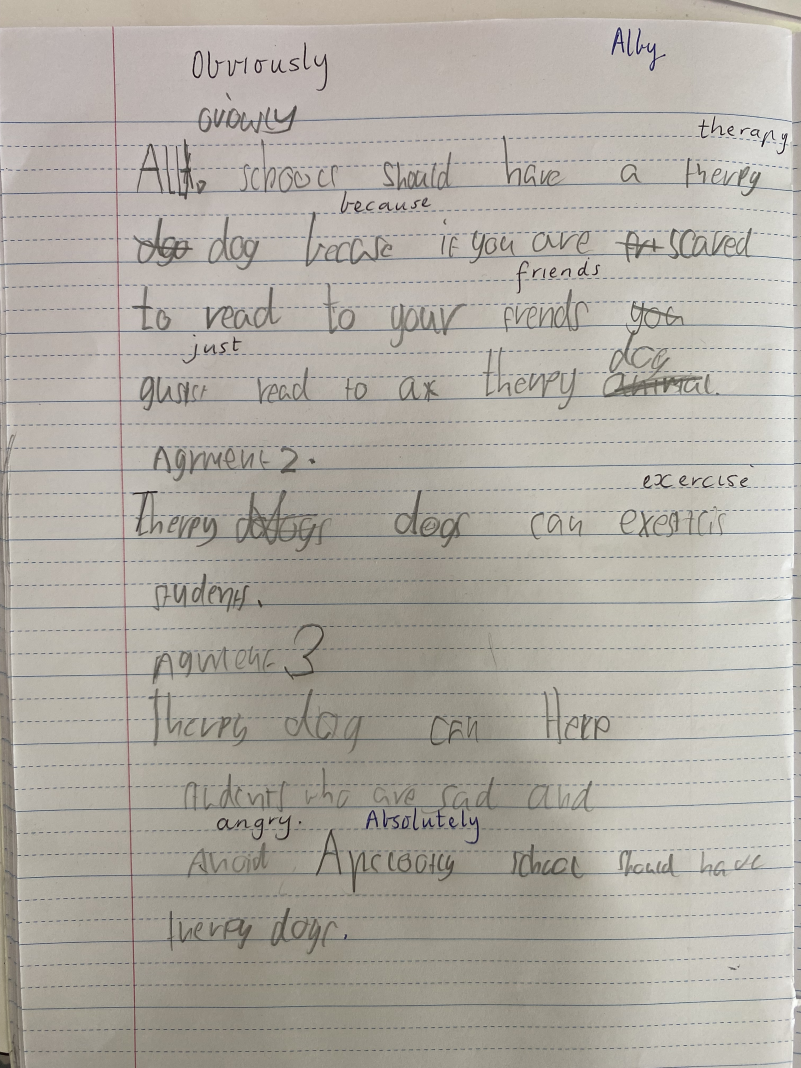 Alby
Obviously
oviowly
therapy
All schools should have a therpy
because
dog becase if you are scared
friends
to read to your frends you
just
dog
gust read to a therpy animal.
Agrment 2.
exercise
Therpy dogs can exestcis
students.
Agment 3
therpy dog can Help
students who are sad and
angry. Absolutely
school should have
therpy dogs.